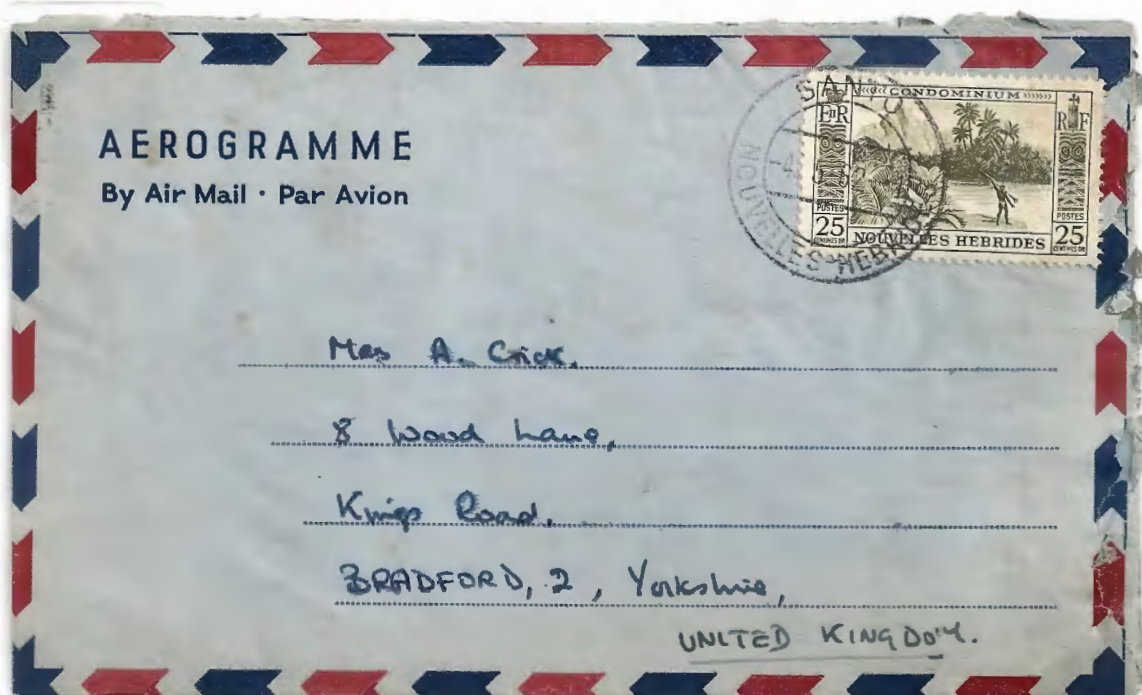 AEROGRAMME
By Air Mail · Par Avion
SANTO
NOUVELLES-HEBRIDES
CONDOMINIUM
EIIR
RF
POSTES
POSTES
25
NOUVELLES HEBRIDES
25
Mrs A. Crick.
8 Wood Lane,
Kings Road.
BRADFORD, 2, Yorkshire,
UNITED KINGDOM.